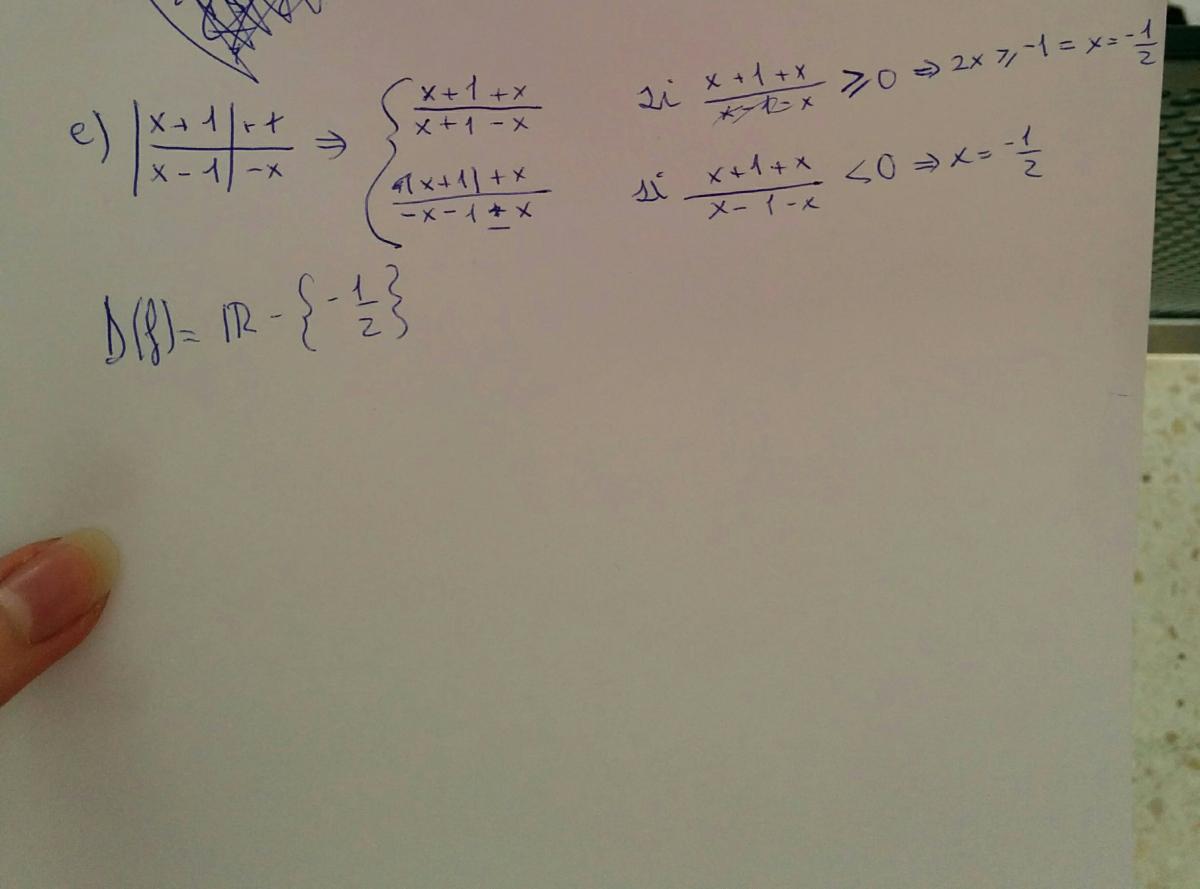 e) |x+1|+x / |x-1|-x ⇒ { x+1+x / x+1-x si x+1+x / x-1-x ≥0 ⇒ 2x ≥ -1 = x = -1/2
-(x+1)+x / -x-1+x si x+1+x / x-1-x <0 ⇒ x = -1/2
D(f)= ℝ - {-1/2}